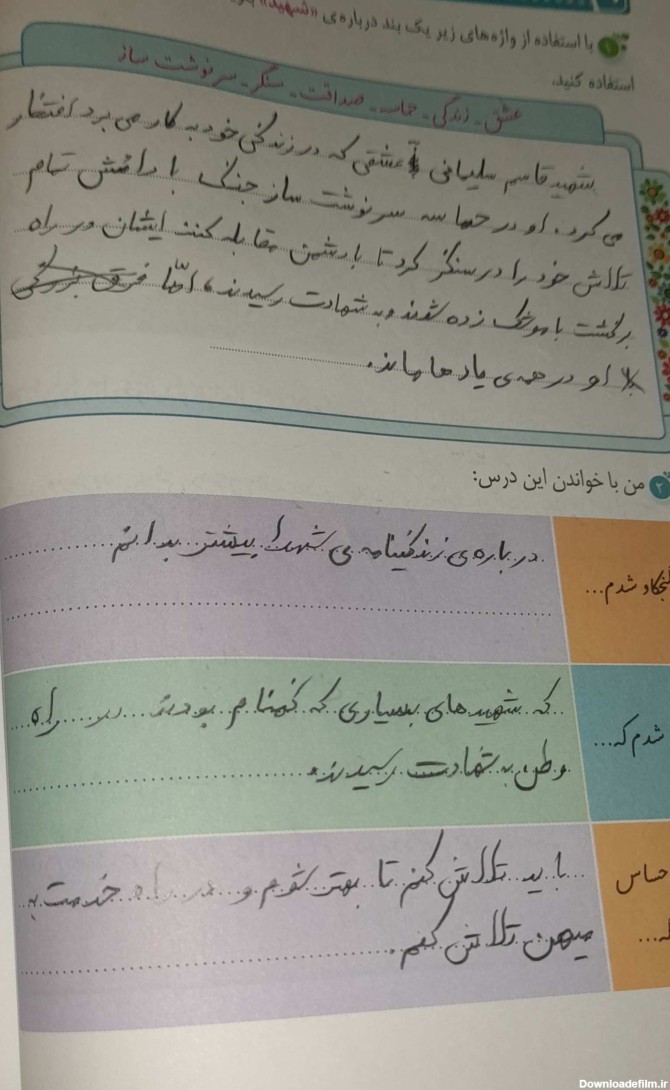 ۱ با استفاده از واژه‌های زیر یک بند درباره‌ی «شهید»
استفاده کنید.
عشق - زندگی - حماسه - صداقت - سنگر - سرنوشت ساز
شهید قاسم سلیمانی با عشقی که در زندگی خود به کار می برد افتخار
می کرد. او در حماسه سرنوشت ساز جنگ با داعش تمام
تلاش خود را در سنگر کرد تا با دشمن مقابله کنند ایشان در راه
برگشت با موشک زده شدند و به شهادت رسیدند، امّا
او در همه ی یادها ماند.
۲ من با خواندن این درس:
کنجکاو شدم...
درباره ی زندگینامه ی شهدا بیشتر بدانم
شدم که...
که شهیدهای بسیاری که گمنام بودند در راه
وطن به شهادت رسیدند.
حساس
باید تلاش کنم تا بهتر شوم و در راه خدمت به
میهن تلاش کنم.
Downloadefilm.ir